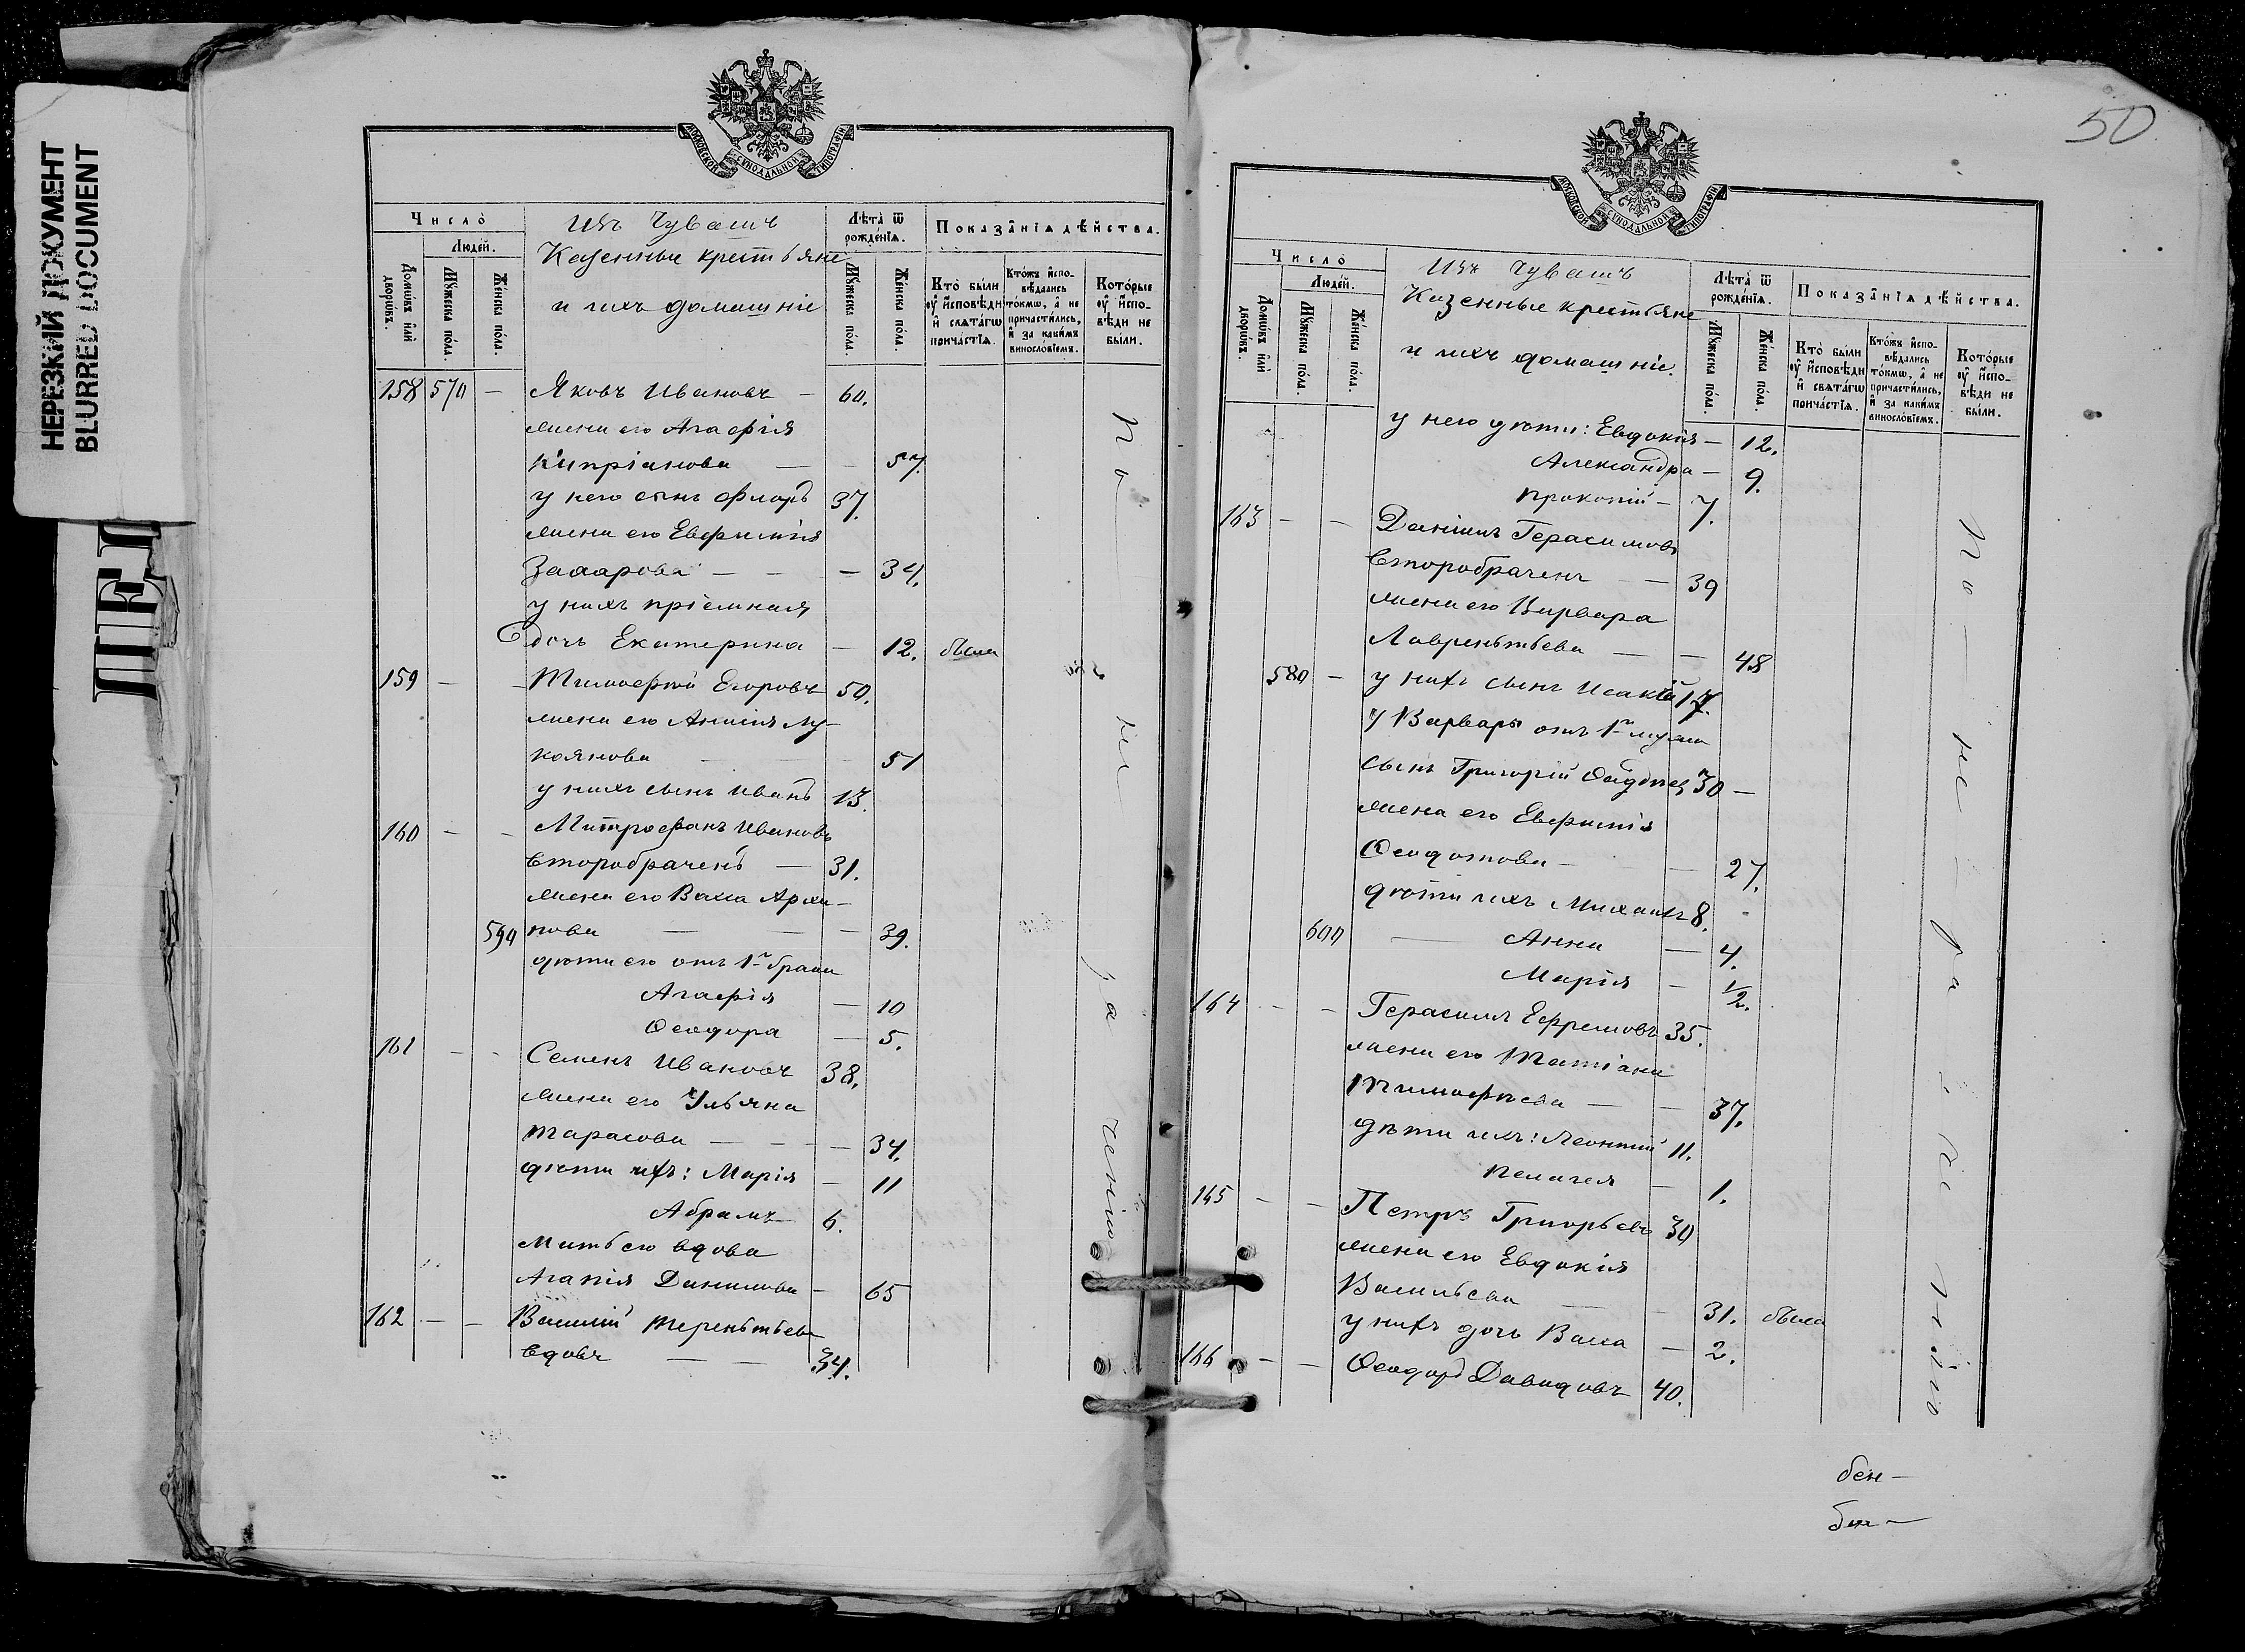 НЕРЕЗКИЙ ДОКУМЕНТ
BLURRED DOCUMENT
МОСКОВСКОЙ СѴНОДАЛЬНОЙ ТИПОГРАФІИ
Число̀
Люде́й.
Домѡ́въ и҆лѝ дворѡ́въ.
Мꙋ́жеска по́ла.
Же́нска по́ла.
Изъ Чувашъ
Казенные крестьяне
и ихъ домашніе
Лѣта̀ ѿ рожде́нїѧ.
Мꙋ́жеска по́ла.
Же́нска по́ла.
Показа̑нїѧ дѣ́йства.
Кто̀ были ᲂу҆ и҆сповѣди и҆ свѧта́гѡ прича́стїѧ.
Кто́жъ и҆спо-вѣдались то́кмѡ, а҆ не причасти́лись, и҆ за каки́мъ виносло́вїемъ.
Кото́рые ᲂу҆ и҆спо-вѣди не бы́ли.
158 570 — Яковъ Ивановъ — 60.
жена его Агафія
Кипріанова — — 57.
у него сынъ Флоръ 37.
жена его Евфимія
Захарова — — — 34.
у нихъ пріемная
дочь Екатерина — 12. была
159 — — Тимофей Егоровъ 50.
жена его Анисія Лу-
коянова — 51
у нихъ сынъ Иванъ 13.
160 — — Митрофанъ Ивановъ
второбраченъ — 31.
жена его Васса Архи-
590 пова — — — 39.
дѣти его отъ 1го брака
Агафія — 10
Ѳеодора — 5.
161 — — Семенъ Ивановъ 38.
жена его Ульяна
Тарасова — — — 34.
дѣти ихъ: Марія — 11
Абрамъ 6.
Мать его вдова
Агапія Данилова — 65
162 — — Василій Терентьевъ
вдовъ — — 34.
по не ра че нію
50
МОСКОВСКОЙ СѴНОДАЛЬНОЙ ТИПОГРАФІИ
Число̀
Люде́й.
Домѡ́въ и҆лѝ дворѡ́въ.
Мꙋ́жеска по́ла.
Же́нска по́ла.
Изъ Чувашъ
Казенные крестьяне
и ихъ домашніе.
Лѣта̀ ѿ рожде́нїѧ.
Мꙋ́жеска по́ла.
Же́нска по́ла.
Показа̑нїѧ дѣ́йства.
Кто̀ были ᲂу҆ и҆сповѣди и҆ свѧта́гѡ прича́стїѧ.
Кто́жъ и҆спо-вѣдались то́кмѡ, а҆ не причасти́лись, и҆ за каки́мъ виносло́вїемъ.
Кото́рые ᲂу҆ и҆спо-вѣди не бы́ли.
у него дѣти: Евдокія — 12.
Александра — 9.
Прокопій — 7.
163 — — Даніилъ Герасимовъ
второбраченъ — — 39
жена его Варвара
Лаврентьева — — 48
580 — у нихъ сынъ Исакій 17.
у Варвары отъ 1го мужа
сынъ Григорій 30 —
жена его Евфимія
Ѳеодотова — — 27.
дѣти ихъ Михаилъ 8.
600 — Анна — 4.
Марія — 1/2.
164 — — Герасимъ Ефремовъ 35.
жена его Татіана
Тимофеева — — 37.
дѣти ихъ: Леонтій 11.
Пелагея — 1.
165 — — Петръ Григорьевъ 30
жена его Евдокія
Васильева — — 31. была
у нихъ дочь Васса — 2.
166 — — Ѳеодоръ Давидовъ 40.
по — не — ра — че — нію
бен —
бен —